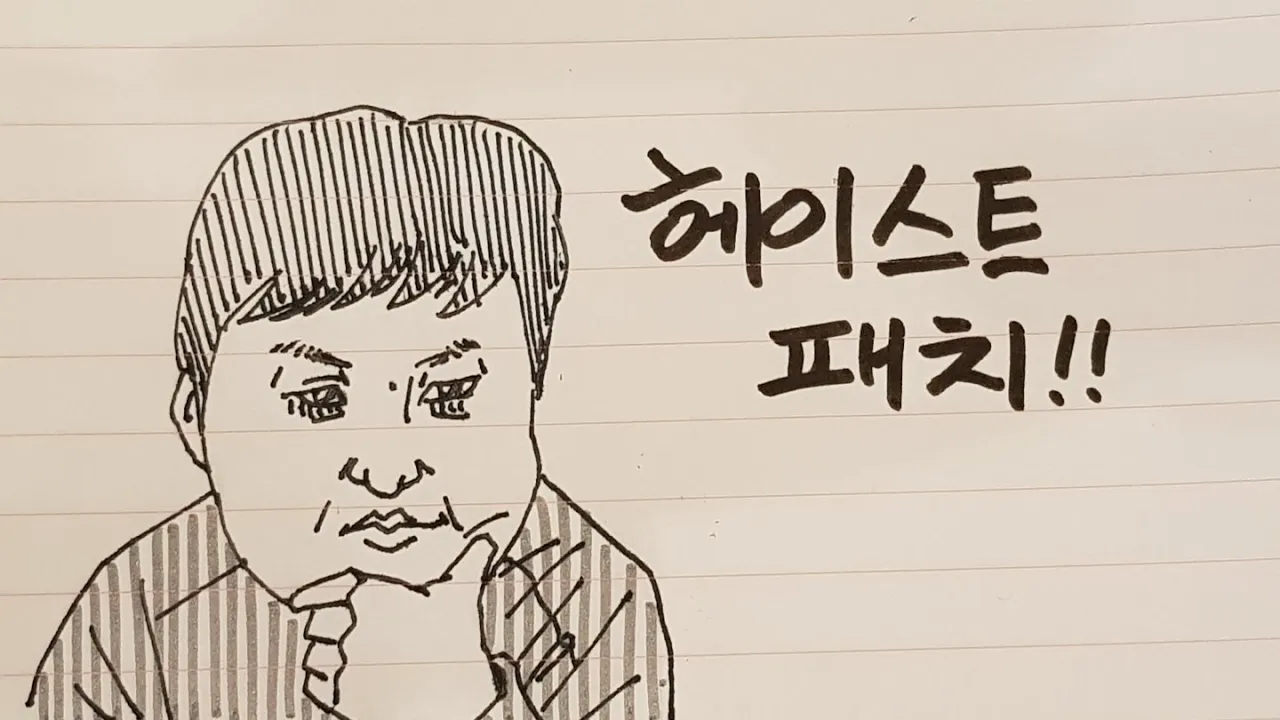 헤이스트
패치!!